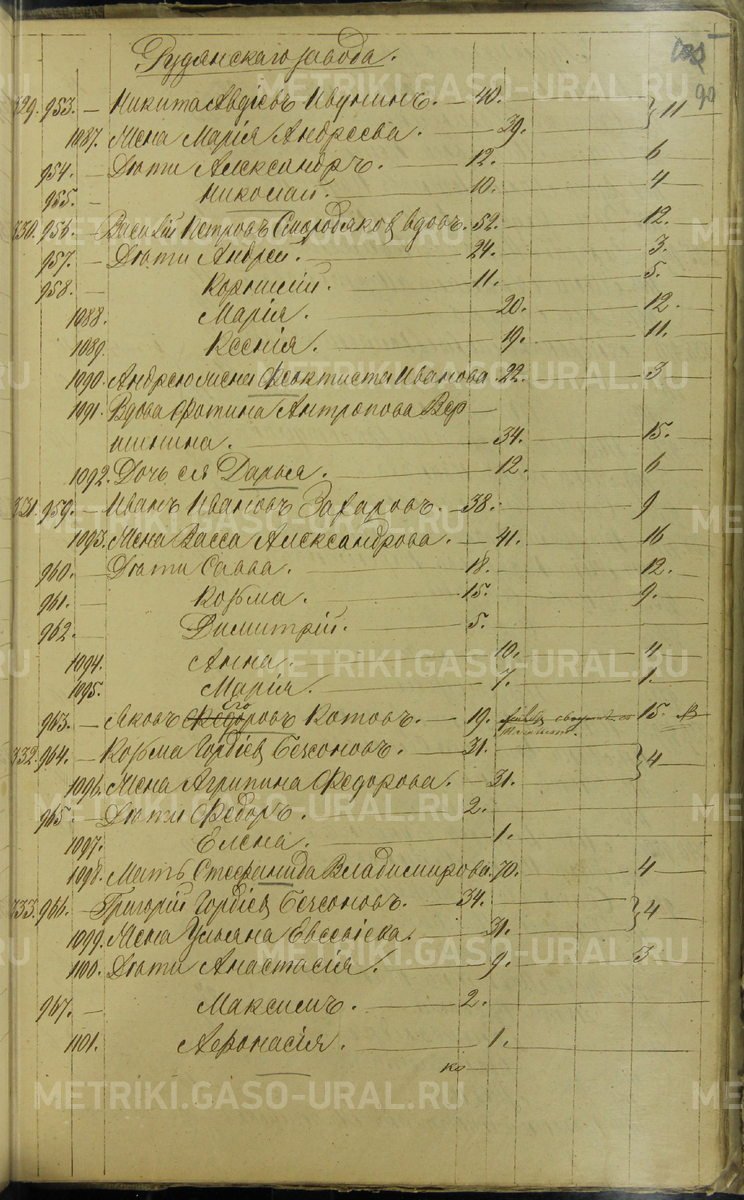 90
Рудянскаго завода.
329. 953. — Никита Авдіевъ Ивунинъ. — 40. 11
1087. Жена Марія Андреева. — 39.
954. — Дѣти Александръ. — 12. 6
955. — Николай. — 10. 4
330. 956. — Василій Петровъ вдовъ. 52. 12.
957. — Дѣти Андрей. — 24. 3.
958. — Корнилій. — 11. 5.
1088. Марія. — 20. 12.
1089. Ксенія. — 19. 11.
1090. Андрею жена Феоктиста Иванова 22. 3
1091. Вдова Фотина Антропова Вер
шинина. — 34. 15.
1092. Дочь ея Дарья. — 12. 6
331. 959. — Иванъ Ивановъ Захаровъ. — 38. 9
1093. Жена Васса Александрова. — 41. 16
960. — Дѣти Савва. — 18. 12.
961. — Козьма. — 15. 9.
962. — Димитрій. — 5.
1094. Анна. — 10. 4
1095. Марія. — 7. 1.
963. — Яковъ Котовъ. — 19. 15.
332. 964. — Козьма Гордіевъ Безсоновъ. — 31. 4
1096. Жена Агрипина Федорова. — 31.
965. — Дѣти Федоръ. — 2.
1097. Елена. — 1.
1098. Мать Стефанида Владимирова. 70. 4
333. 966. — Григорій Гордіевъ Безсоновъ. — 34. 4
1099. Жена Ульяна Евсевіева. — 31.
1100. Дѣти Анастасія. — 9. 3
967. — Максимъ. — 2.
1101. Афонасія. — 1.
METRIKI.GASO-URAL.RU